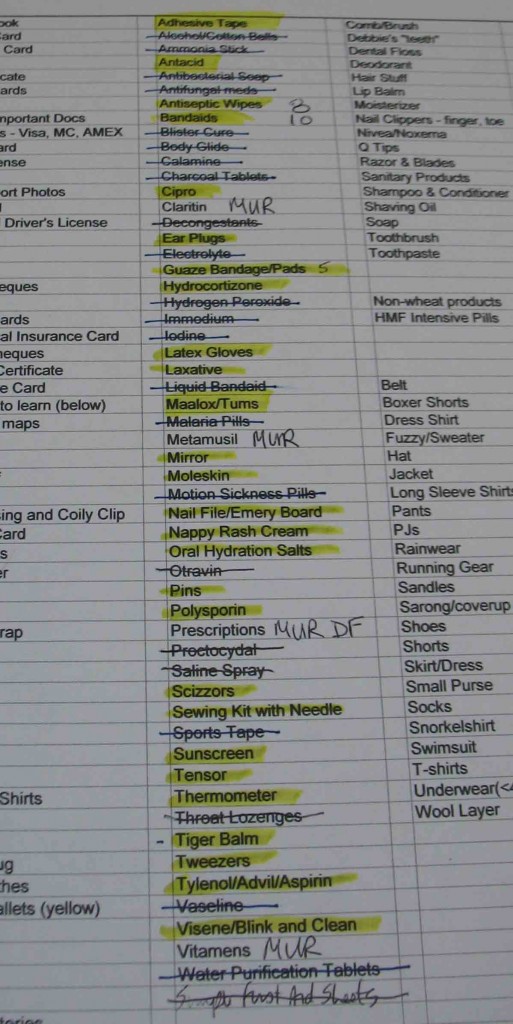 ook Adhesive Tape Comb/Brush
Card Alcohol/Cotton Balls Debbie's "teeth"
Card Ammonia Stick Dental Floss
Antacid Deodorant
cate Antibacterial Soap Hair Stuff
ards Antifungal meds Lip Balm
Antiseptic Wipes 8 Moisterizer
mportant Docs Bandaids 10 Nail Clippers - finger, toe
s - Visa, MC, AMEX Blister Cure Nivea/Noxema
ard Body Glide Q Tips
ense Calamine Razor & Blades
Charcoal Tablets Sanitary Products
ort Photos Cipro Shampoo & Conditioner
Claritin MUR Shaving Oil
Driver's License Decongestants Soap
Ear Plugs Toothbrush
Electrolyte Toothpaste
Guaze Bandage/Pads 5
eques Hydrocortizone
Hydrogen Peroxide Non-wheat products
ards Immodium HMF Intensive Pills
al Insurance Card Iodine
heques Latex Gloves
Certificate Laxative
e Card Liquid Bandaid Belt
to learn (below) Maalox/Tums Boxer Shorts
maps Malaria Pills Dress Shirt
Metamusil MUR Fuzzy/Sweater
Mirror Hat
Moleskin Jacket
Motion Sickness Pills Long Sleeve Shirts
sing and Coily Clip Nail File/Emery Board Pants
Card Nappy Rash Cream PJs
s Oral Hydration Salts Rainwear
er Otravin Running Gear
Pins Sandles
Polysporin Sarong/coverup
rap Prescriptions MUR DF Shoes
Proctocydal Shorts
Saline Spray Skirt/Dress
Scizzors Small Purse
Sewing Kit with Needle Socks
Sports Tape Snorkelshirt
Sunscreen Swimsuit
Tensor T-shirts
Shirts Thermometer Underwear(<4
Throat Lozenges Wool Layer
- Tiger Balm
ug Tweezers
thes Tylenol/Advil/Aspirin
allets (yellow) Vaseline
Visene/Blink and Clean
Vitamens MUR
Water Purification Tablets
First Aid Sheets